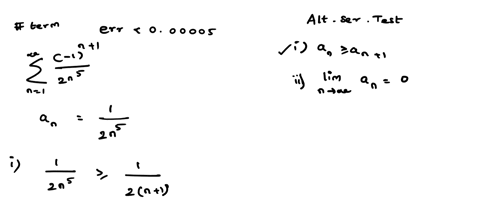 # term err < 0.00005
∞
∑ (-1)^{n+1} / 2n^5
n=1
a_n = 1 / 2n^5
i) 1 / 2n^5 ≥ 1 / 2(n+1)
Alt. Ser. Test
✓ i) a_n ≥ a_{n+1}
ii) lim a_n = 0
n→∞